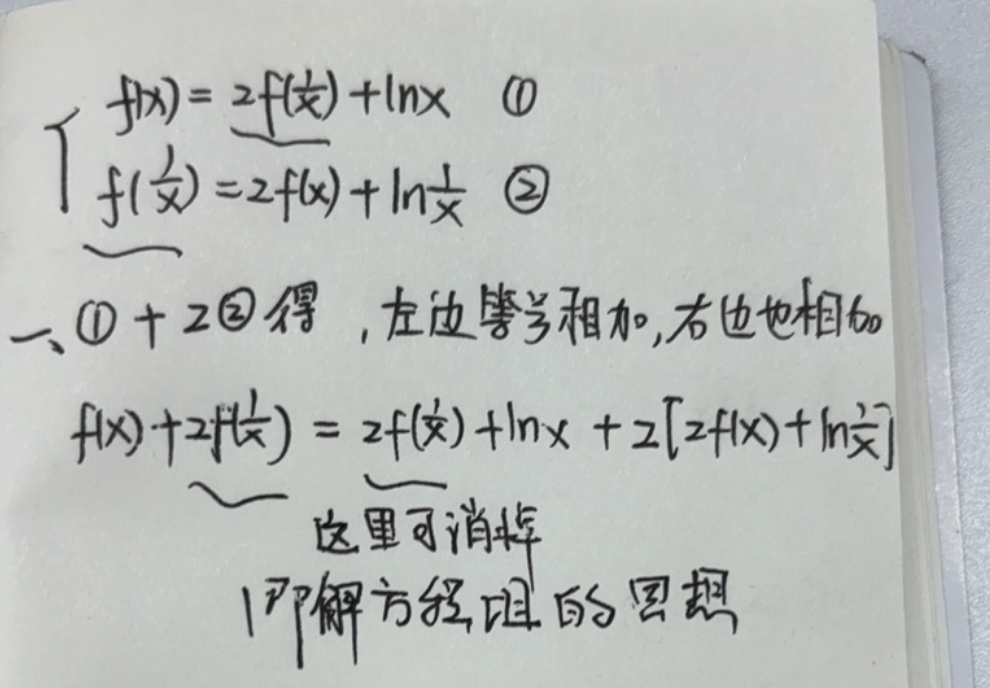 f(x) = 2f(1/x) + lnx ①
f(1/x) = 2f(x) + ln1/x ②
一、① + 2②得，左边等号相加，右边也相加
f(x) + 2f(1/x) = 2f(1/x) + lnx + 2[2f(x) + ln1/x]
这里可消掉
即解方程组的思想